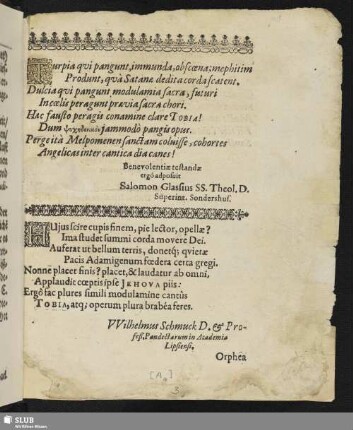 Turpia qvi pangunt, immunda, obscœna: mephitim
Produnt, qvà Satanæ dedita corda scatent.
Dulcia qvi pangunt modulamia sacra, futuri
In cœlis peragunt prævia sacra chori.
Hac fausto peragis conamine clare TOBIA!
Dum ψυχηδικὸν jammodò pangis opus.
Perge ità Melpomenen sanctam coluisse, cohortes
Angelicas inter cantica dia canes!
Benevolentiæ testandæ
ergò adposuit
Salomon Glassius SS. Theol. D.
Superint. Sondershus.
HUjus scire cupis finem, pie lector, opellæ?
Ima studet summi corda movere Dei.
Auferat ut bellum terris, donetq; qvietæ
Pacis Adamigenum fœdera certa gregi.
Nonne placet finis? placet, & laudatur ab omni,
Applaudit cœptis ipse JEHOVA piis:
Ergò fac plures simili modulamine cantùs
TOBIA, atq; operum plura brabéa feres.
VVilhelmus Schmuck D. & Pro-
fess. Pandectarum in Academia
Lipsiensi.
Orphea
SLUB
Wir führen Wissen.